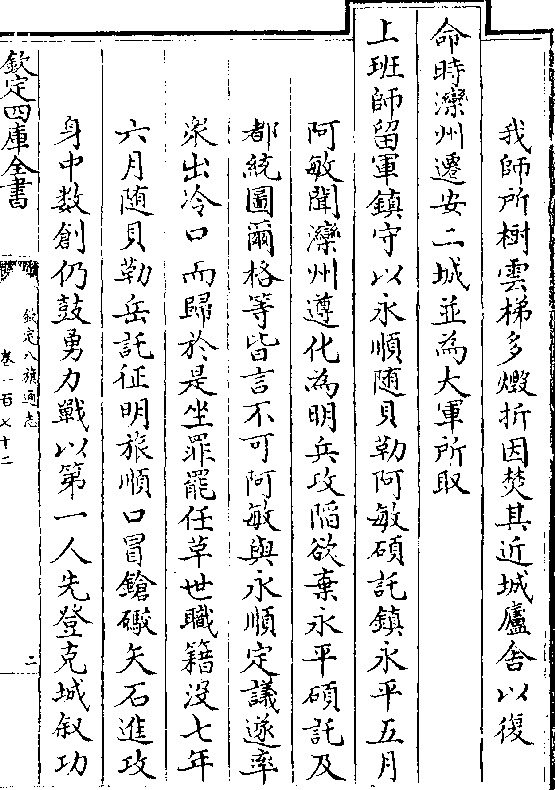 我師所樹雲梯多燬折因焚其近城廬舍以復
命時灤州遷安二城並為大軍所取
上班師留軍鎮守以永順随貝勒阿敏碩託鎮永平五月
阿敏聞灤州遵化為明兵攻陷欲棄永平碩託及
都統圖爾格等皆言不可阿敏與永順定議遂率
衆出冷口而歸於是坐罪罷任革世職籍没七年
六月随貝勒岳託征明旅順口冒鎗礮矢石進攻
身中数創仍鼓勇力戰以第一人先登克城叙功
欽定四庫全書
欽定八旗通志
卷一百七十二
二